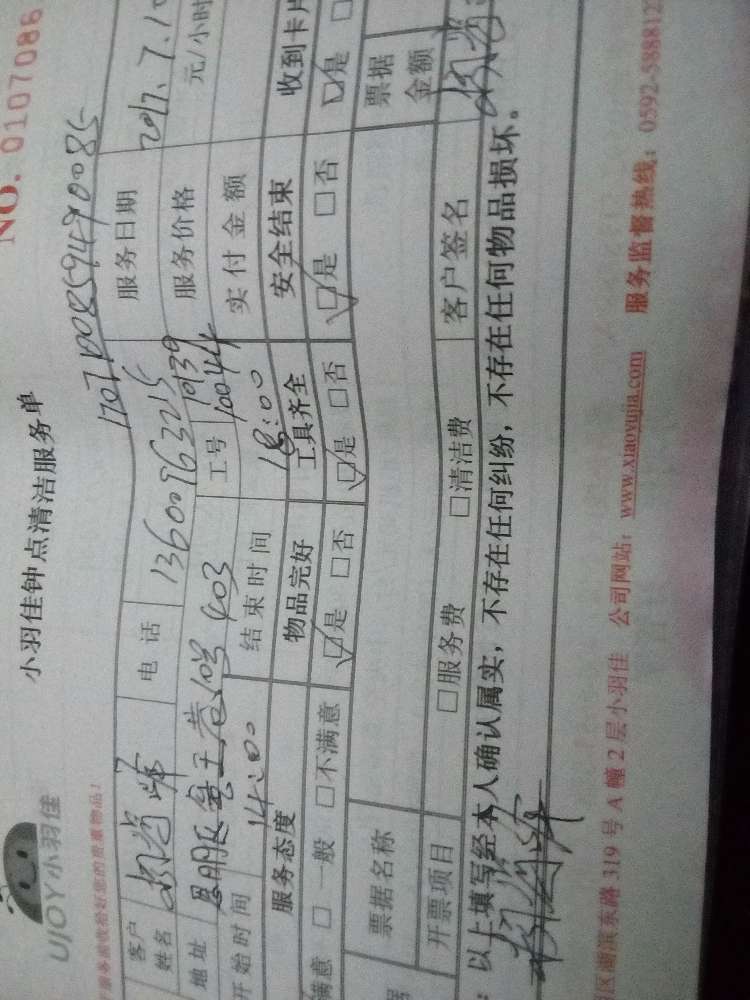 UJOY小羽佳
小羽佳钟点清洁服务单
NO. 0107086
服务接收拾好您的贵重物品！
1707100859490085
客户姓名
电话 13600963215
服务日期 2017.7.10
地址
403
工号 10139 10044
服务价格 元/小时
开始时间 14:00
结束时间 18:00
实付金额
服务态度 物品完好 工具齐全 安全结束 收到卡片
满意 □一般 □不满意 ☑是 □否 ☑是 □否 ☑是 □否 ☑是 □
票据名称
票据金额
开票项目 □服务费 □清洁费 客户签名
：以上填写经本人确认属实，不存在任何纠纷，不存在任何物品损坏。
区湖滨东路319号A幢2层小羽佳 公司网站：www.xiaoyujia.com 服务监督热线：0592-5888812